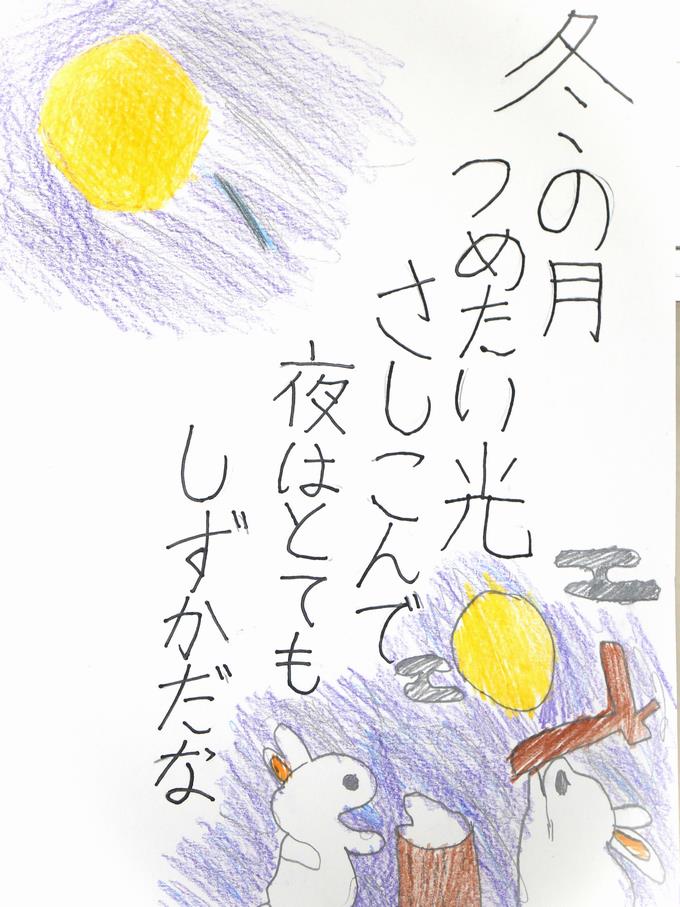 冬の月
つめたい光
さしこんで
夜はとても
しずかだな